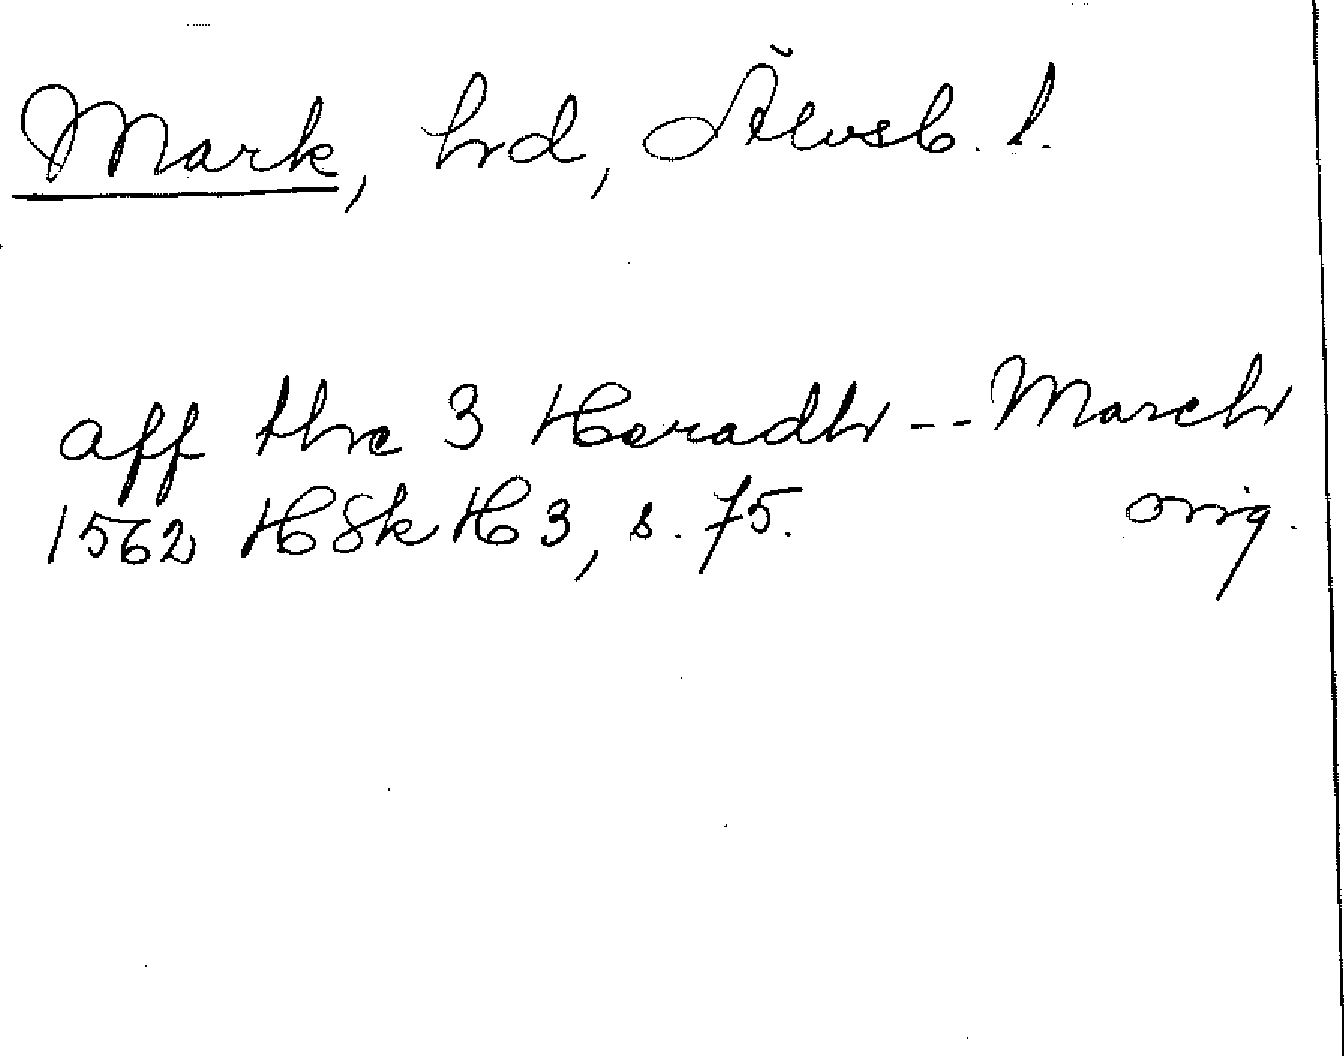 Mark, hd, Älvsb. l.
aff thre 3 Heradh -- March
1562 HSkH 3, s. 75. orig.